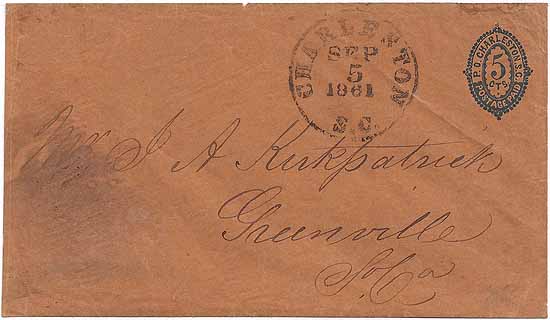 CHARLESTON
SEP
5
1861
S.C.
P.O. CHARLESTON. S.C.
5
CTS
POSTAGE PAID
J A Kirkpatrick
Greenville
So. Ca